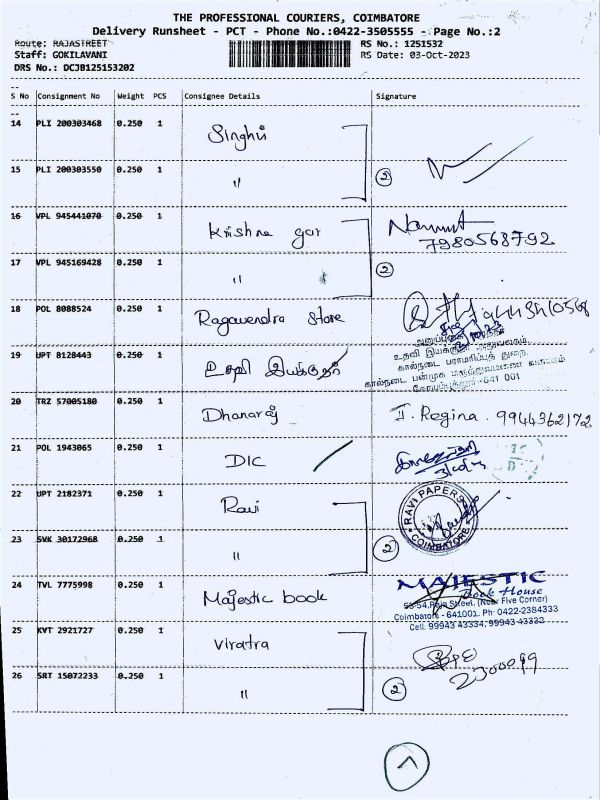 THE PROFESSIONAL COURIERS, COIMBATORE
Delivery Runsheet - PCT - Phone No.:0422-3505555 - Page No.:2
Route: RAJASTREET
RS No.: 1251532
Staff: GOKILAVANI
RS Date: 03-Oct-2023
DRS No.: DCJB125153202
S No Consignment No Weight PCS Consignee Details Signature
14 PLI 200303468 0.250 1 Singhvi
15 PLI 200303550 0.250 1 " 2
16 VPL 945441070 0.250 1 Krishna gar
7980568792
17 VPL 945169428 0.250 1 " 2
18 POL 8088524 0.250 1 Ragavendra Store
19 UPT 8128443 0.250 1 உதவி இயக்குநர்
உதவி இயக்குநர் அலுவலகம்,
கால்நடை பராமரிப்புத் துறை,
கால்நடை பன்முக மருத்துவமனை வளாகம்
கோயம்புத்தூர்-641 001
20 TRZ 57005180 0.250 1 Dhanaraj I. Regina. 9944362172
21 POL 1943065 0.250 1 DIC
22 UPT 2182371 0.250 1 Ravi
RAVI PAPERS
COIMBATORE
23 SVK 30172968 0.250 1 " 2
24 TVL 7775998 0.250 1 Majestic book
MAJESTIC
Book House
53-54, Raja Street, (Near Five Corner)
Coimbatore - 641001. Ph: 0422-2384333
Cell: 99943 43334, 99943 43332
25 KVT 2921727 0.250 1 Viratra
26 SRT 15072233 0.250 1 " 2